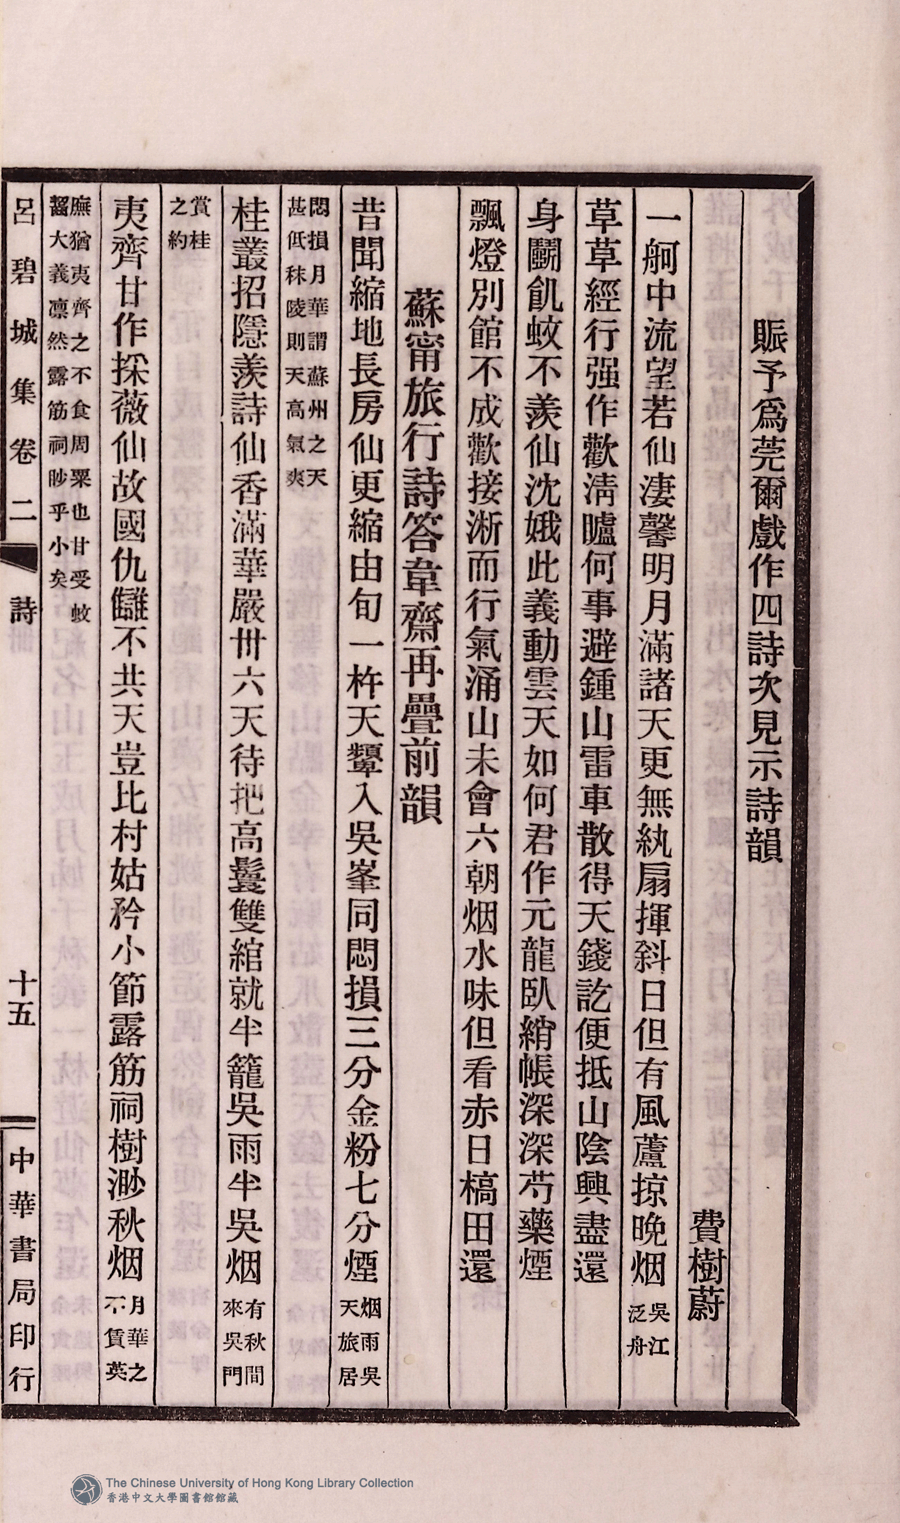 賑予爲莞爾戲作四詩次見示詩韻
費樹蔚
一舸中流望若仙淒馨明月滿諸天更無紈扇揮斜日但有風蘆掠晚烟吳江泛舟
草草經行强作歡淸矑何事避鍾山雷車散得天錢訖便抵山陰興盡還
身鬭飢蚊不羨仙沈娥此義動雲天如何君作元龍臥綃帳深深芍藥煙
飄燈別館不成歡接淅而行氣涌山未會六朝烟水味但看赤日槁田還
蘇甯旅行詩答韋齋再疊前韻
昔聞縮地長房仙更縮由旬一杵天顰入吳峯同悶損三分金粉七分煙烟雨吳天旅居
悶損月華謂蘇州之天甚低秣陵則天高氣爽
桂叢招隱羨詩仙香滿華嚴卅六天待把高鬟雙綰就半籠吳雨半吳烟有秋間來吳門
賞桂之約
夷齊甘作採薇仙故國仇讎不共天豈比村姑矜小節露筋祠樹渺秋烟月華之不賃英
廡猶夷齊之不食周粟也甘受蚊齧大義凛然露筋祠眇乎小矣
呂碧城集卷二 詩 十五 中華書局印行
The Chinese University of Hong Kong Library Collection
香港中文大學圖書館館藏